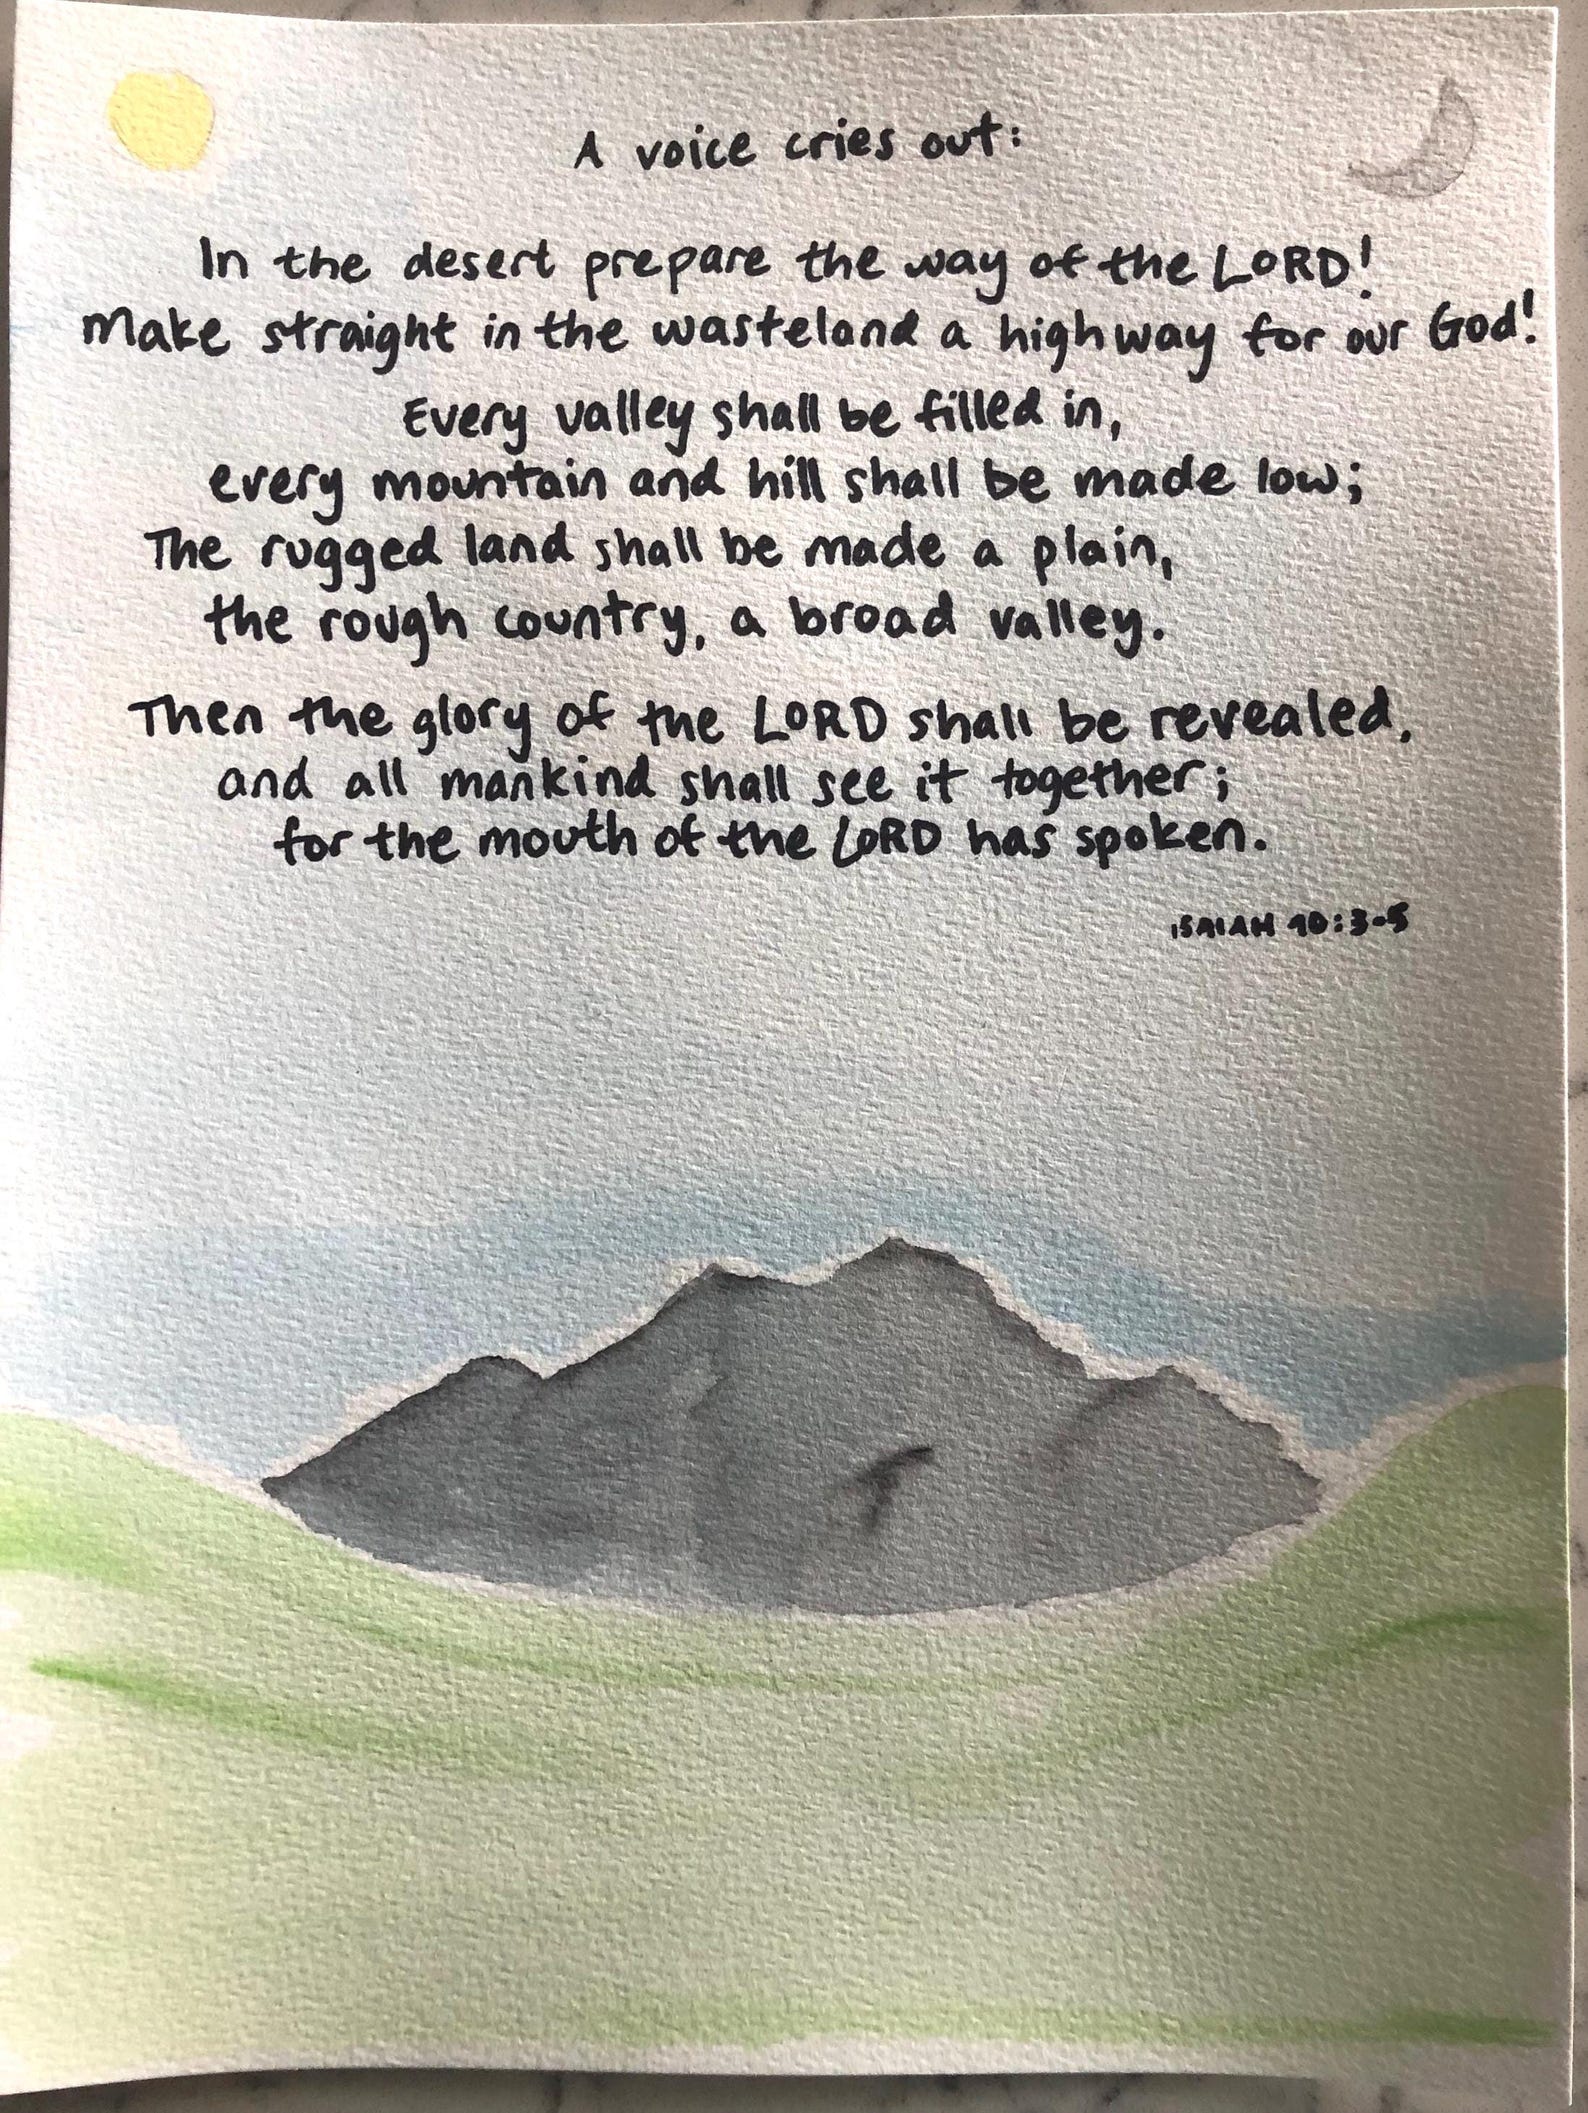 A voice cries out:
In the desert prepare the way of the LORD!
Make straight in the wasteland a highway for our God!
Every valley shall be filled in,
every mountain and hill shall be made low;
The rugged land shall be made a plain,
the rough country, a broad valley.
Then the glory of the LORD shall be revealed,
and all mankind shall see it together;
for the mouth of the LORD has spoken.
ISAIAH 40:3-5